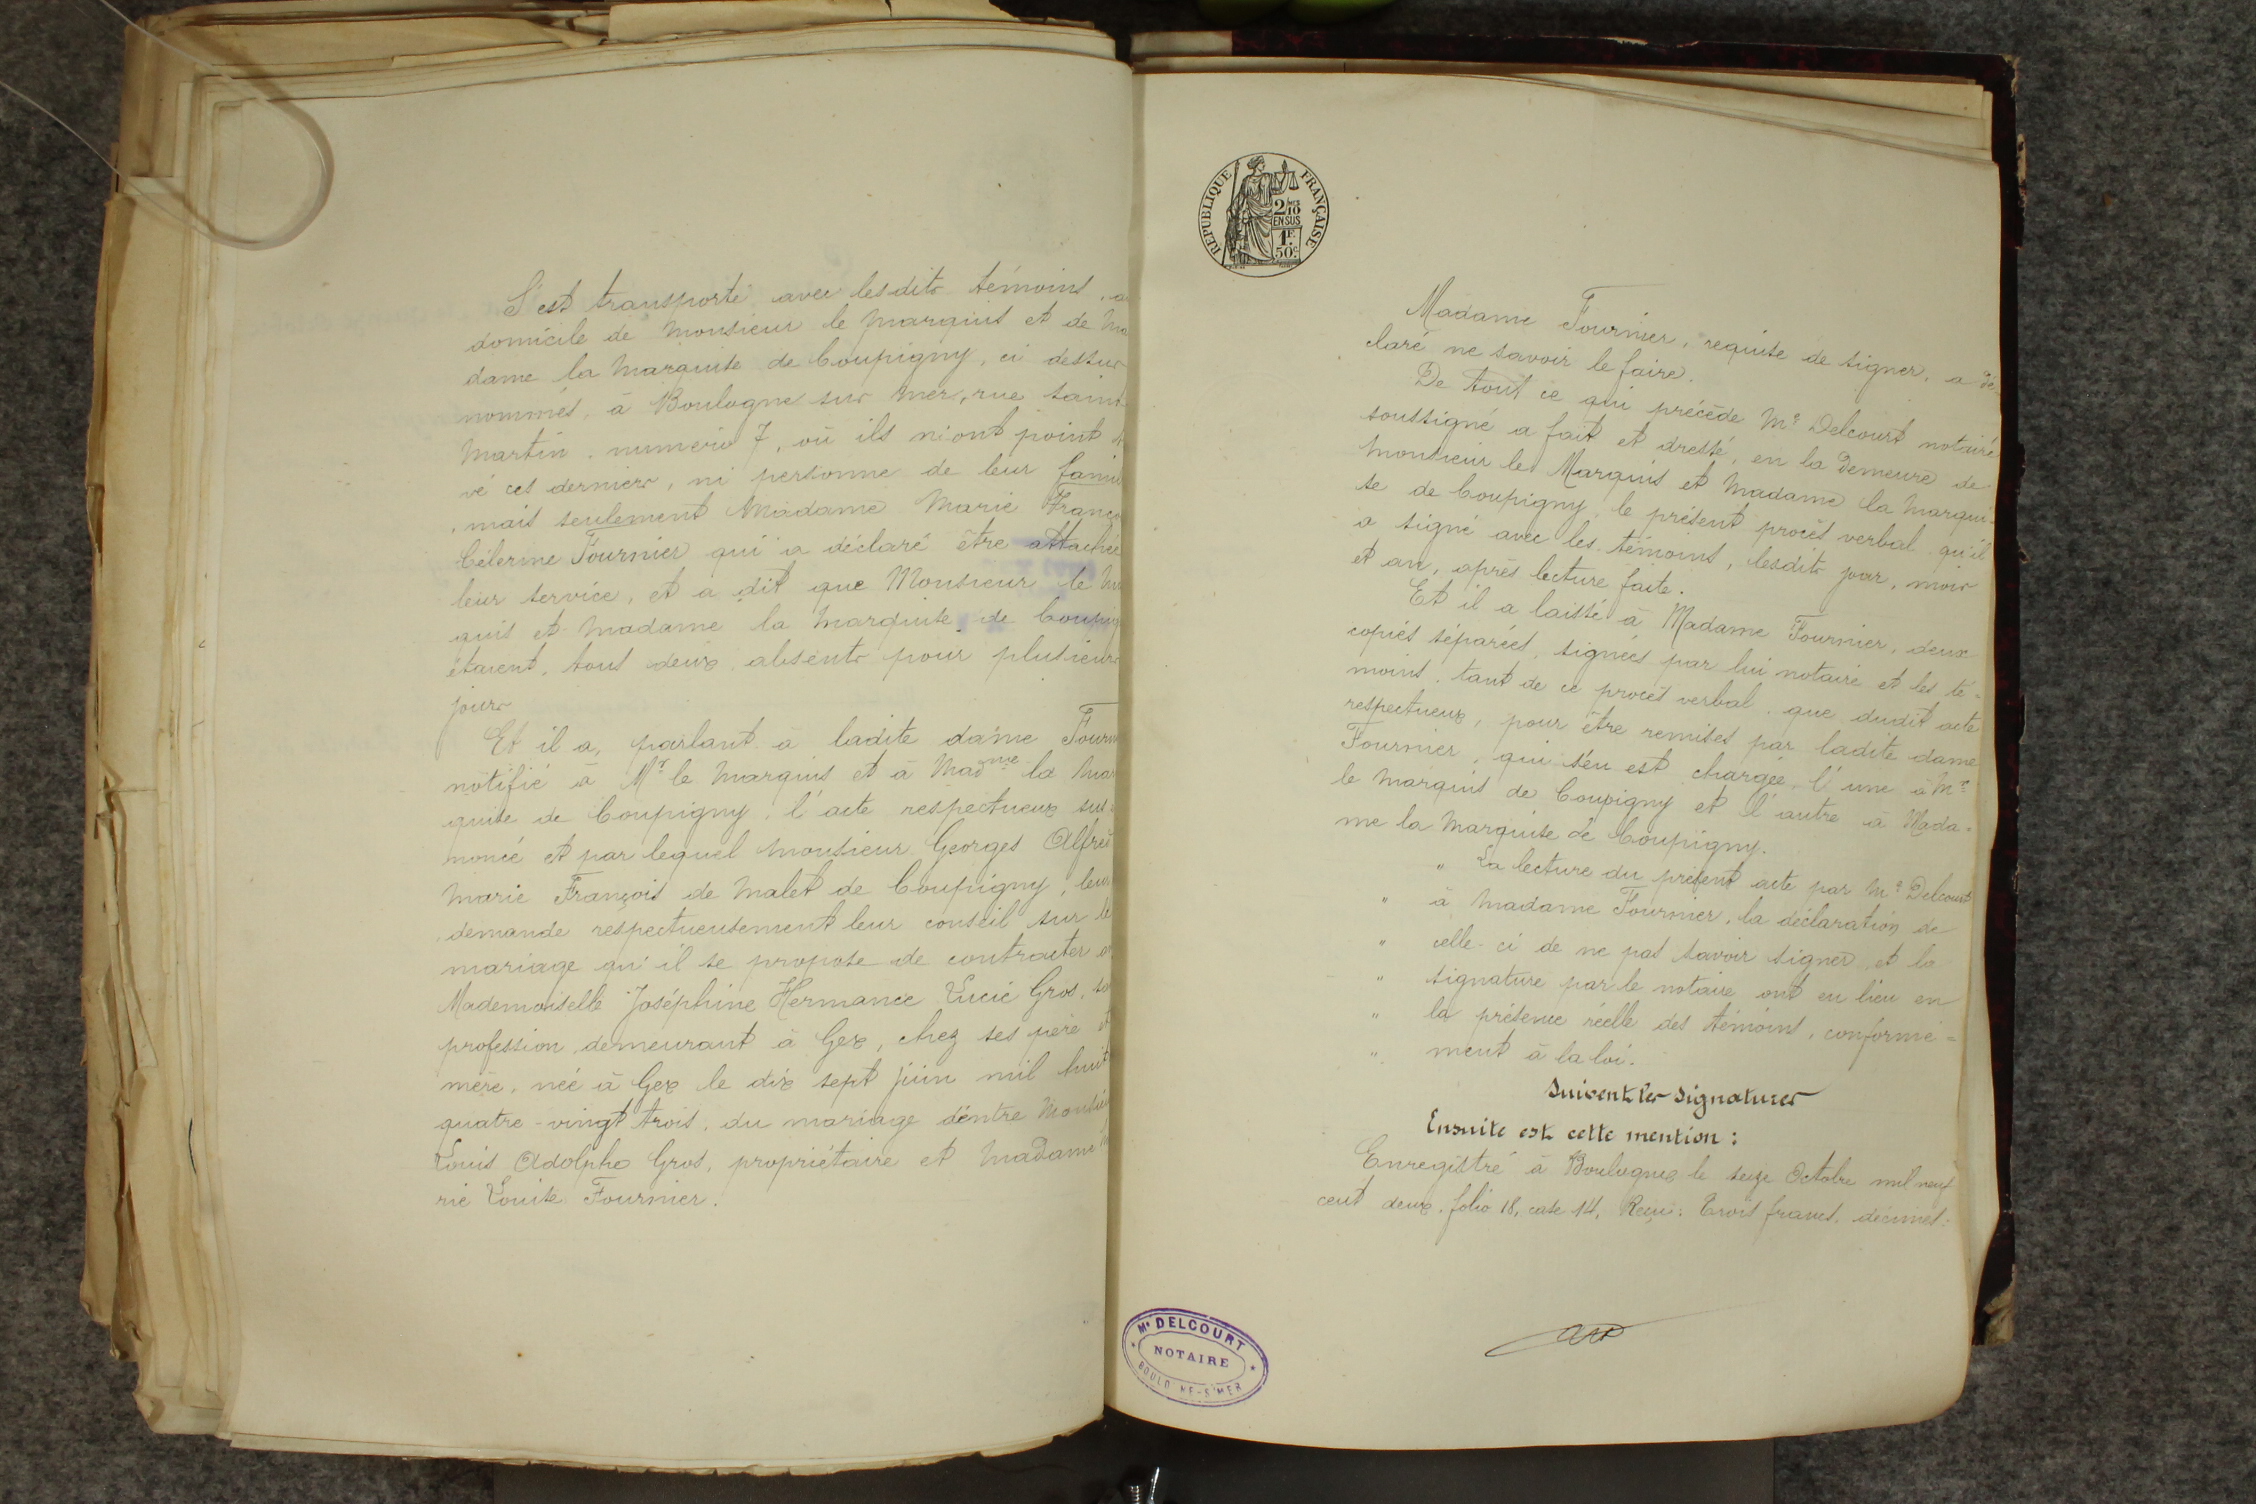 S'est transporté avec lesdits témoins, a
domicile de Monsieur le Marquis et de Ma
dame la Marquise de Coupigny, ci dessus
nommés, à Boulogne sur Mer, rue Saint
Martin, numéro 7, où ils n'ont point
vé ces derniers, ni personne de leur famil
, mais seulement Madame Marie Franço
Célerine Fournier qui a déclaré être attachée
leur service, et a dit que Monsieur le Mar
quis et Madame la Marquise de Coupig
étaient, tous deux absents pour plusieurs
jours
Et il a, parlant à ladite dame Fourn
notifié à Mr le Marquis et à Madme la Mar
quise de Coupigny, l'acte respectueux sus-
noncé et par lequel Monsieur Georges Alfred
Marie François de Malet de Coupigny, leur
demande respectueusement leur conseil sur le
mariage qu'il se propose de contracter a
Mademoiselle Joséphine Hermance Lucie Gros, sa
profession, demeurant à Gex, chez ses père et
mère, née à Gex le dix sept juin mil huit
quatre-vingt trois, du mariage d'entre Monsieu
Louis Adolphe Gros, propriétaire et Madame
rie Louise Fournier.
RÉPUBLIQUE FRANÇAISE
2/10
EN SUS
1F.
50c.
Madame Fournier, requise de signer, a dé
claré ne savoir le faire.
De tout ce qui précède Me Delcourt notaire
soussigné a fait et dressé, en la demeure de
Monsieur le Marquis et Madame la Marqui-
se de Coupigny, le présent procès verbal qu'il
a signé avec les témoins, lesdits jour, mois
et an, après lecture faite.
Et il a laissé à Madame Fournier, deux
copies séparées, signées par lui notaire et les té-
moins, tant de ce procès verbal, que dudit acte
respectueux, pour être remises par ladite dame
Fournier, qui s'en est chargée, l'une à Mr
le Marquis de Coupigny et l'autre à Mada-
me la Marquise de Coupigny.
" La lecture du présent acte par Me Delcourt
" à Madame Fournier, la déclaration de
" celle-ci de ne pas savoir signer, et la
" signature par le notaire ont eu lieu en
" la présence réelle des témoins, conformé=
" ment à la loi.
Suivent les signatures
Ensuite est cette mention :
Enregistré à Boulogne le seize Octobre mil neuf
cent deux, folio 18, case 14, Reçu: Trois francs, décimes:
Me DELCOURT
NOTAIRE
BOULO NE-S'MER